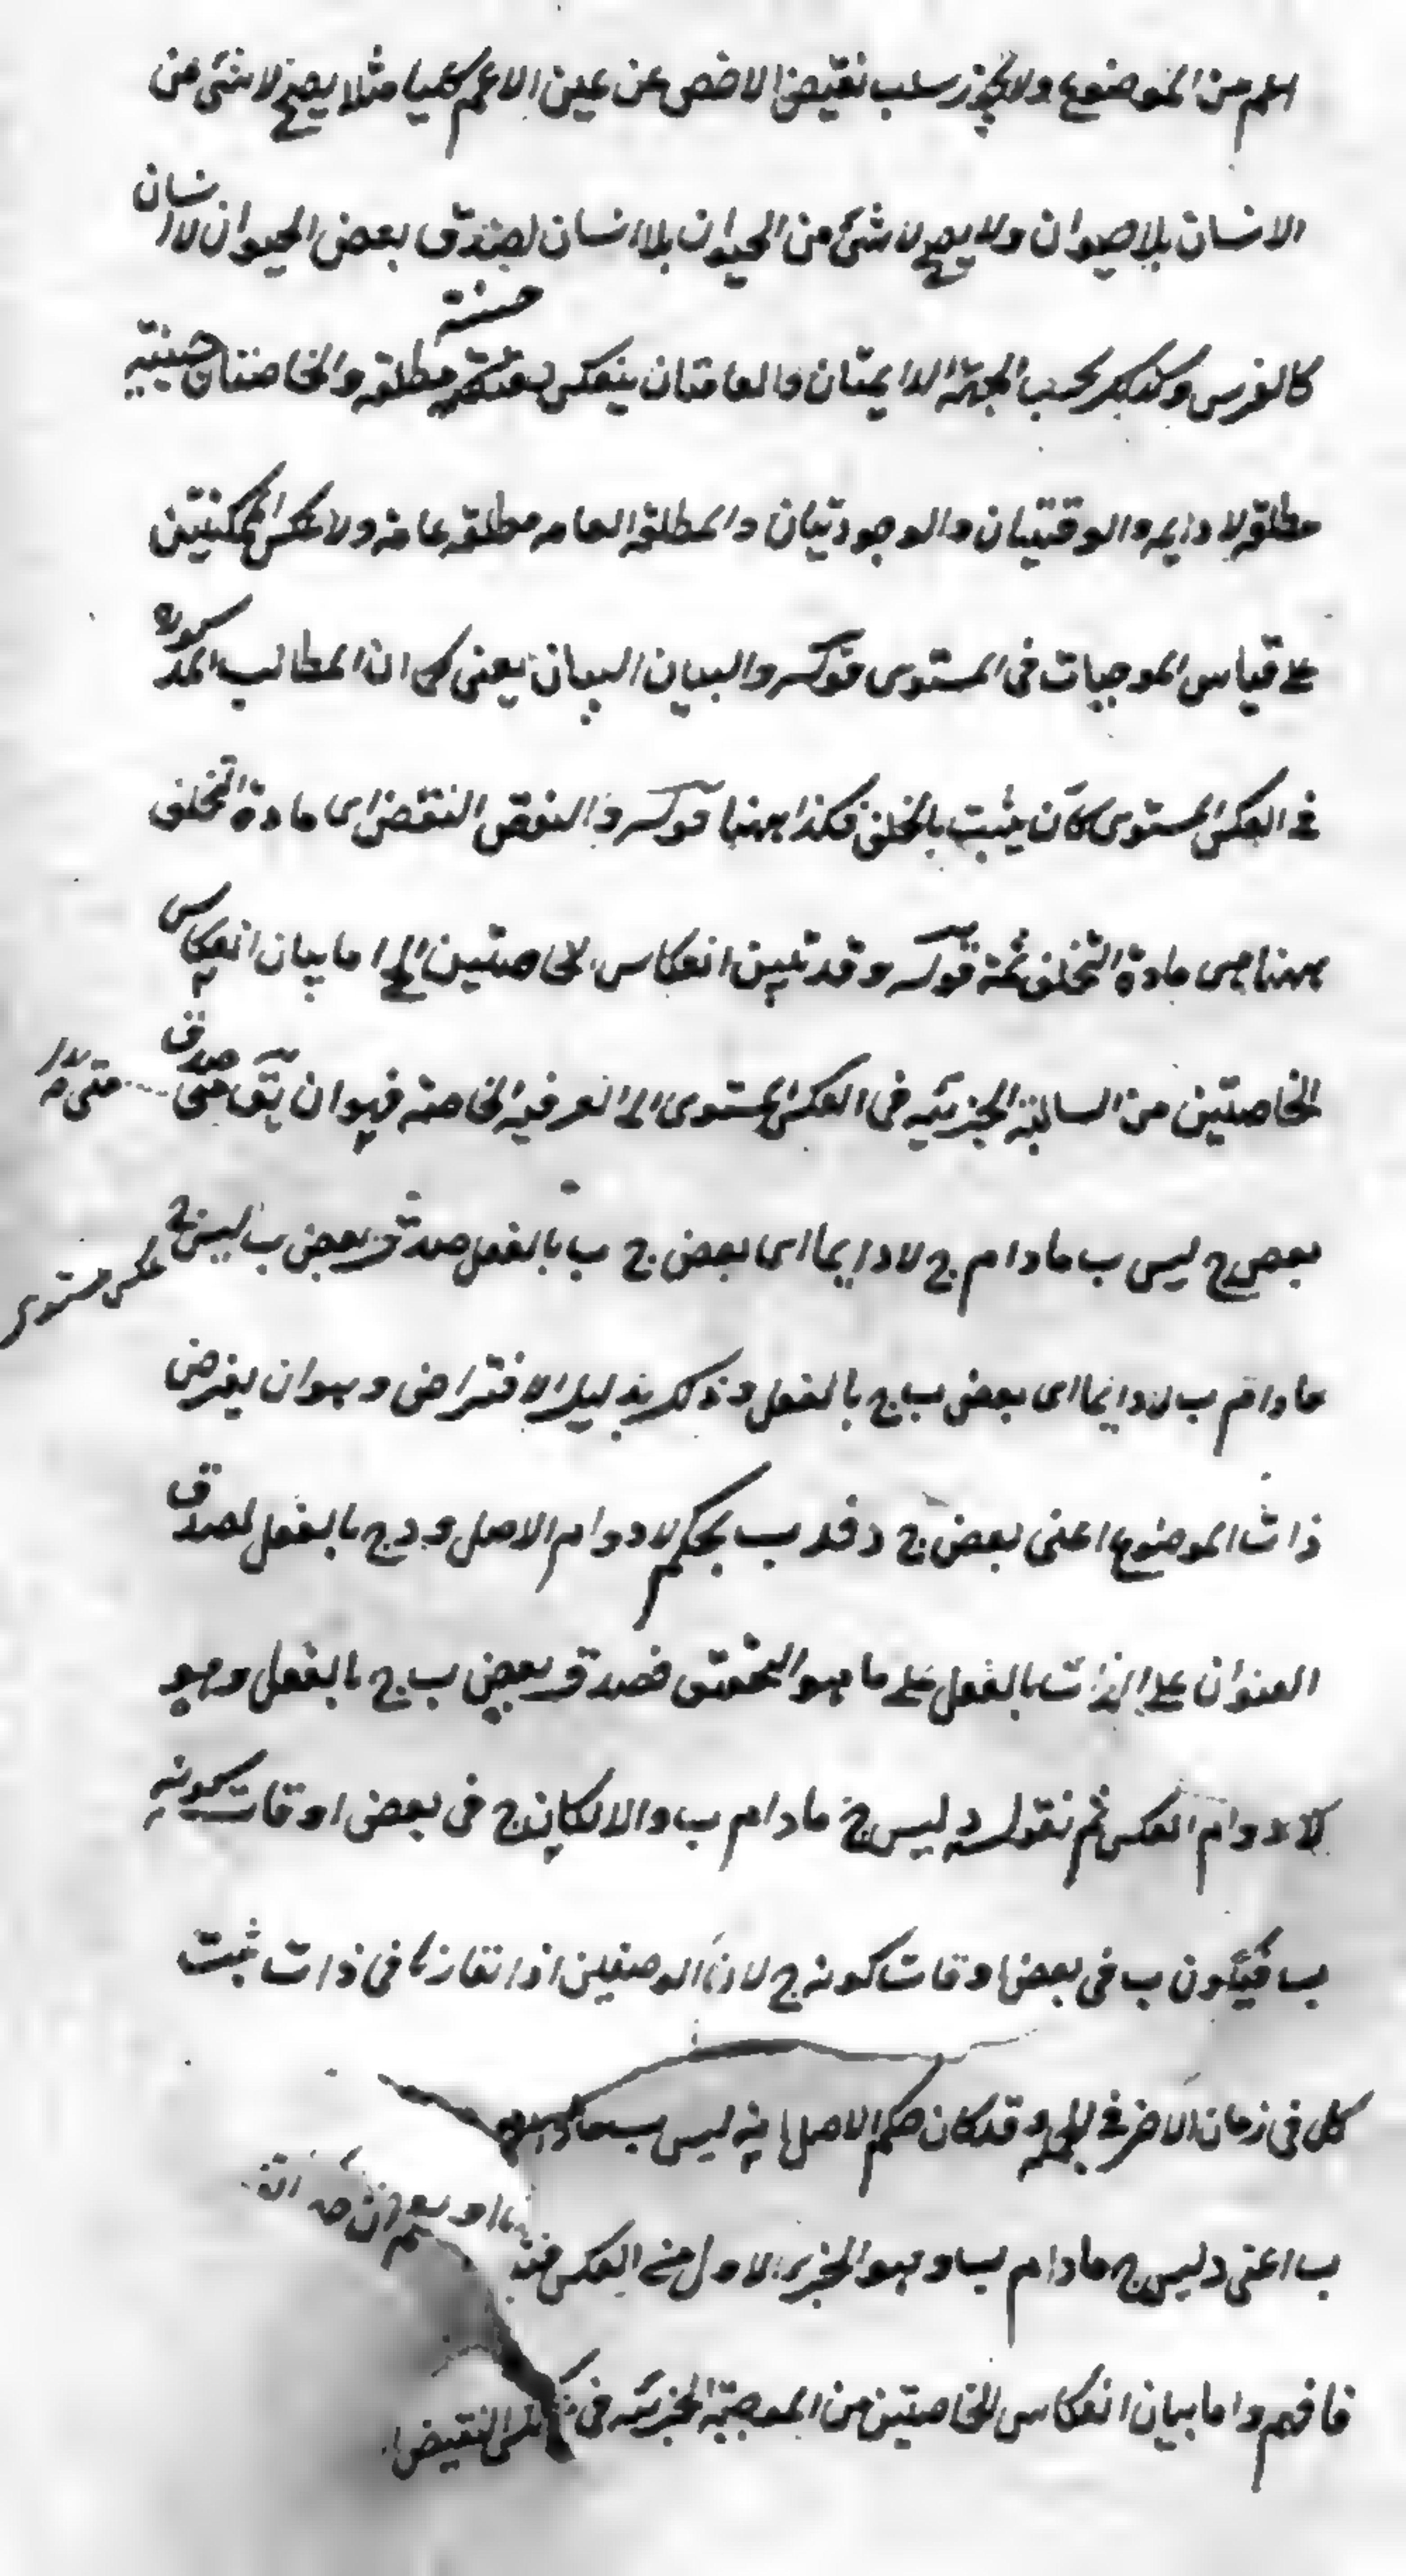 اعم من الموضوع ولا يجوز سلب نقيض الاخص عن عين الاعم كليا مثلا يصح لا شئ من
الانسان بلا حيوان ولا يصح لا شئ من الحيوان بلا انسان لصدق بعض الحيوان لا انسان
كالفرس وكذلك بحسب الجهة الدايمتان والعامتان ينعكس حينية مطلقه والخاصتان حينية
مطلقه لا دايمه والوقتيتان والوجوديتان والمطلقه العامه مطلقه عامه ولا عكس للممكنتين
على قياس الموجبات فى المستوى قوله والبيان البيان يعنى كما ان المطالب المذكورة
فى العكس المستوى كان يثبت بالخلف فكذا ههنا قوله والنقض النقض اى مادة التخلف
ههنا هى مادة التخلف ثمه قوله وقد تبين انعكاس الخاصتين الخ اما بيان انعكاس
الخاصتين من السالبة الجزئيه فى العكس المستوى الى العرفيه الخاصه فهو ان يق متى صدق
بعض ج ليس ب مادام ج لا دايما اى بعض ج ب بالفعل صدق بعض ب ليس ج
عكس مستوى
مادام ب لا دائما اى بعض ب ج بالفعل وذلك بدليل الافتراض وهو ان يفرض
ذات الموضوع اعنى بعض ج د فد ب بحكم لا دوام الاصل و د ج بالفعل لصدق
العنوان على الذات بالفعل على ما هو التحقيق فصدق بعض ب ج بالفعل وهو
لا دوام العكس ثم نقول د ليس ج مادام ب والا لكان ج فى بعض اوقات كونه
ب فيكون ب فى بعض اوقات كونه ج لان الوصفين اذا تقارنا فى ذات ثبت
كل فى زمان الاخر فى الجملة وقد كان حكم الاصل انه ليس ب مادام
ب اعنى د ليس ج مادام ب وهو الجزء الاول من العكس
فافهم واما بيان انعكاس الخاصتين من الموجبة الجزئيه فى عكس النقيض